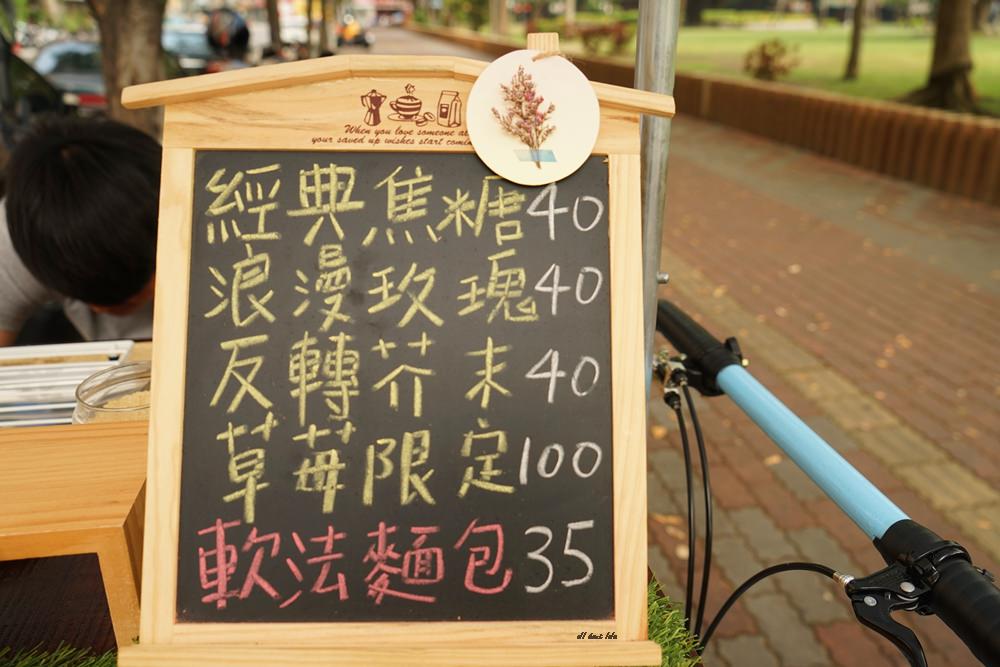 When you love someone
your saved up wishes start
經典焦糖40
浪漫玫瑰40
反轉芥末40
草莓限定100
軟法麵包35